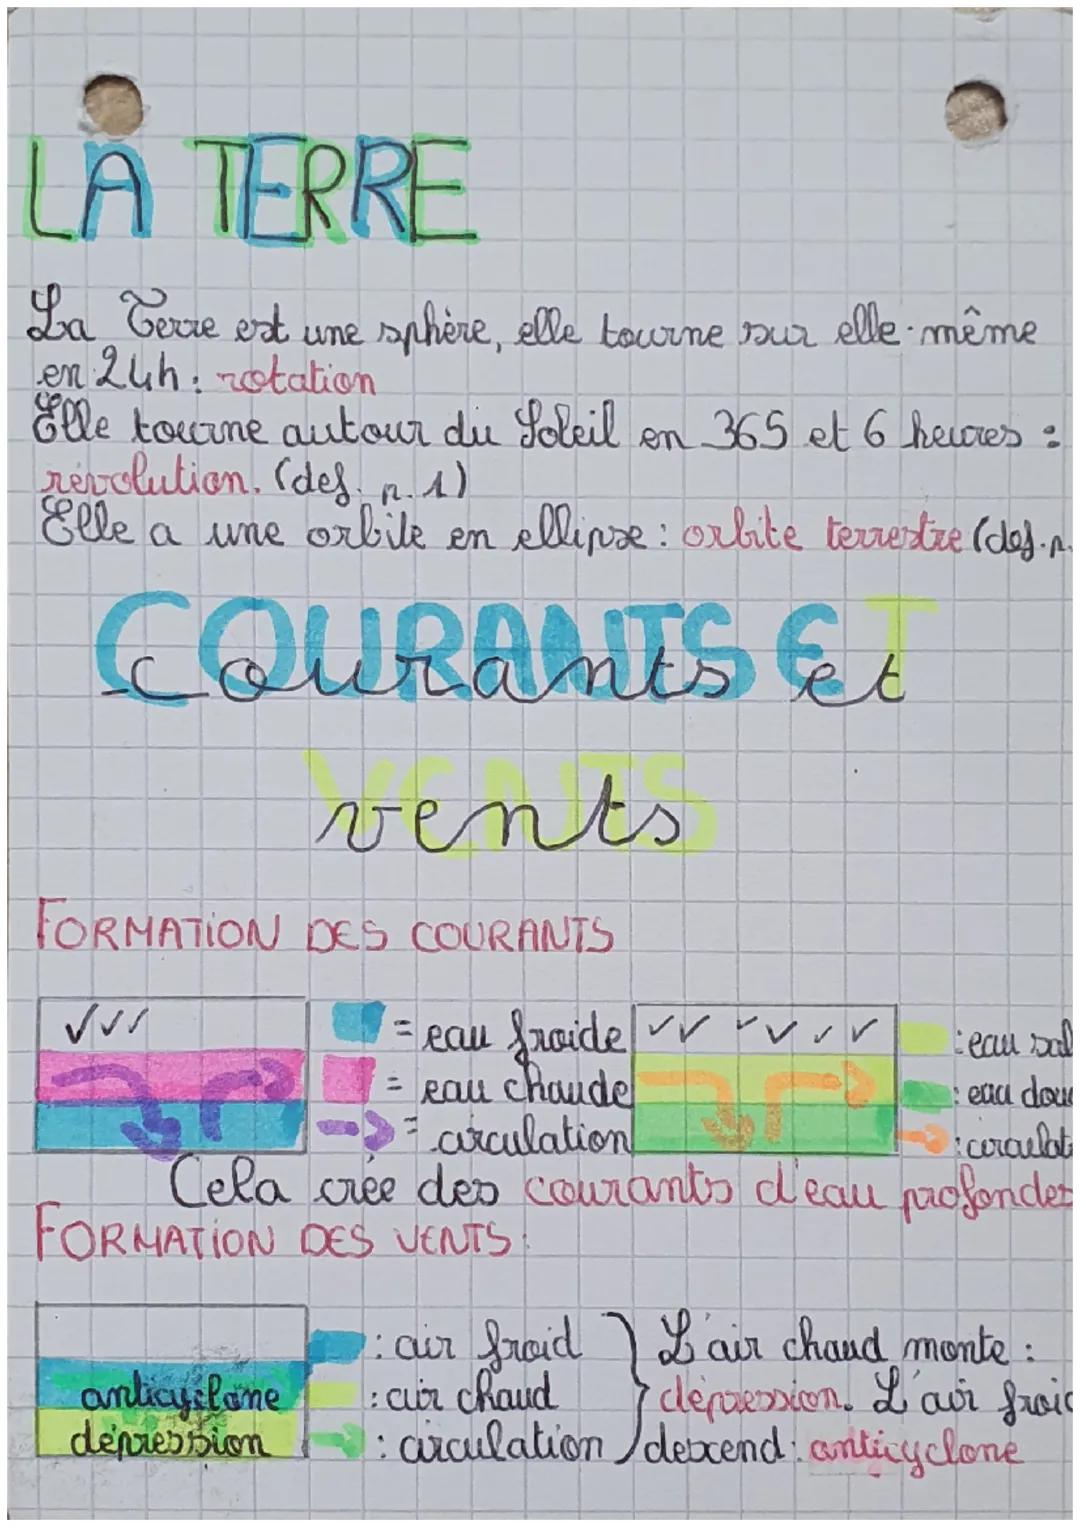 LA TERRE
La Terre est une sphère, elle tourne sur elle-même
en 24h : rotation
Elle tourne autour du Soleil en 365 et 6 heures :
révolution. (def. n. 1)
Elle a une orbite en ellipse : orbite terrestre (def. n.
COURANTS ET
courants et
VENTS
vents
FORMATION DES COURANTS
= eau froide
= eau chaude
= circulation
: eau sal
: eau douc
: circulat
Cela crée des courants d'eau profondes
FORMATION DES VENTS:
anticyclone
dépression
: air froid
: air chaud
: circulation
L'air chaud monte :
dépression. L'air froid
descend : anticyclone